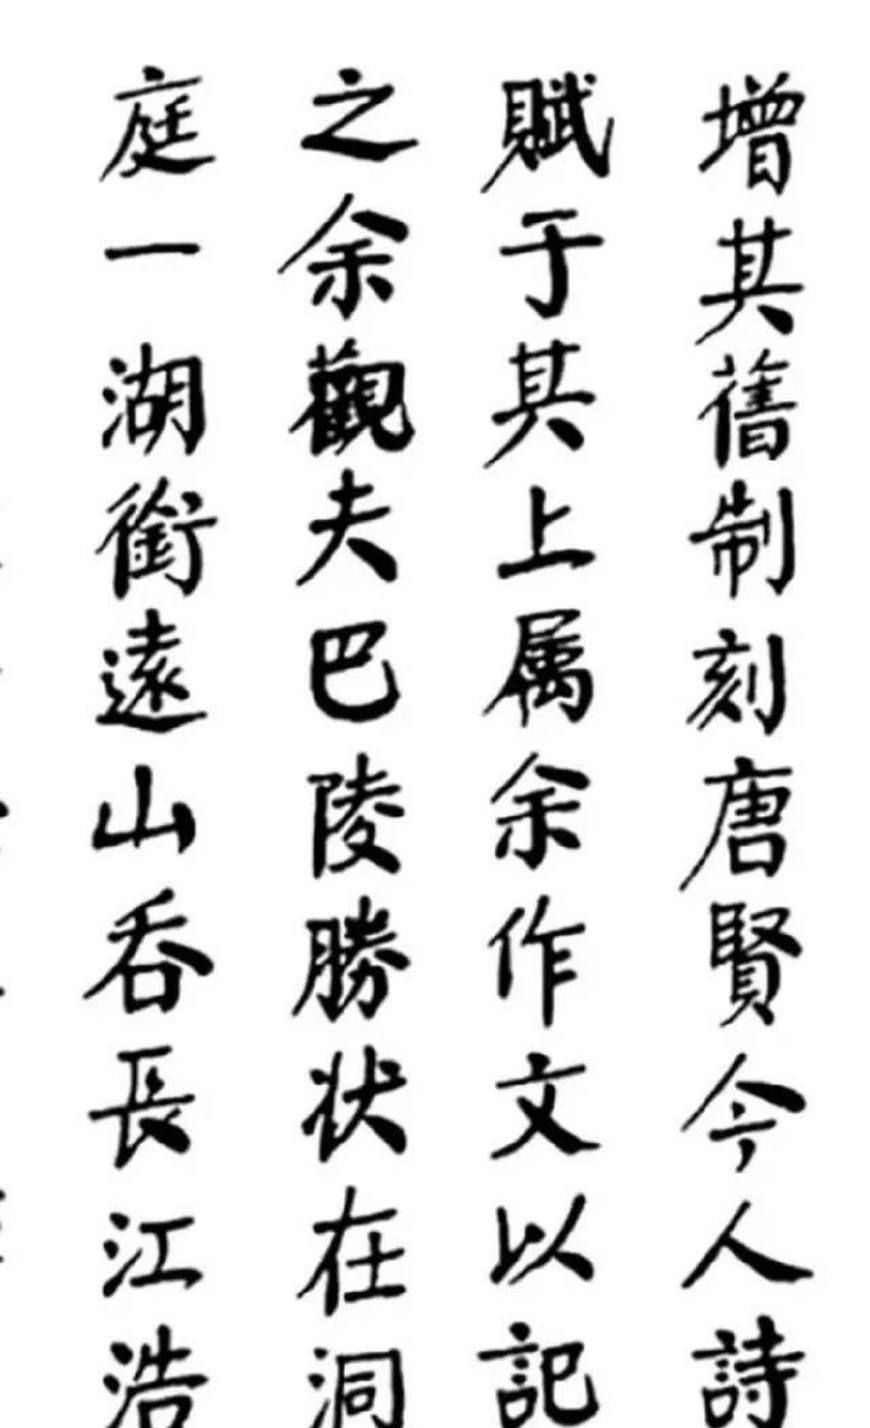 增其舊制刻唐賢今人詩
賦于其上属余作文以記
之余觀夫巴陵勝状在洞
庭一湖銜遠山吞長江浩